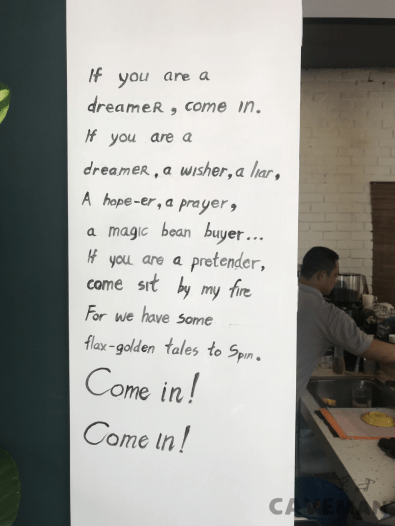 If you are a
dreameR, come in.
If you are a
dreameR, a wisher, a liar,
A hope-er, a prayer,
a magic bean buyer...
If you are a pretender,
come sit by my fire
For we have some
flax-golden tales to Spin.
Come in!
Come in!
CAVEMAN